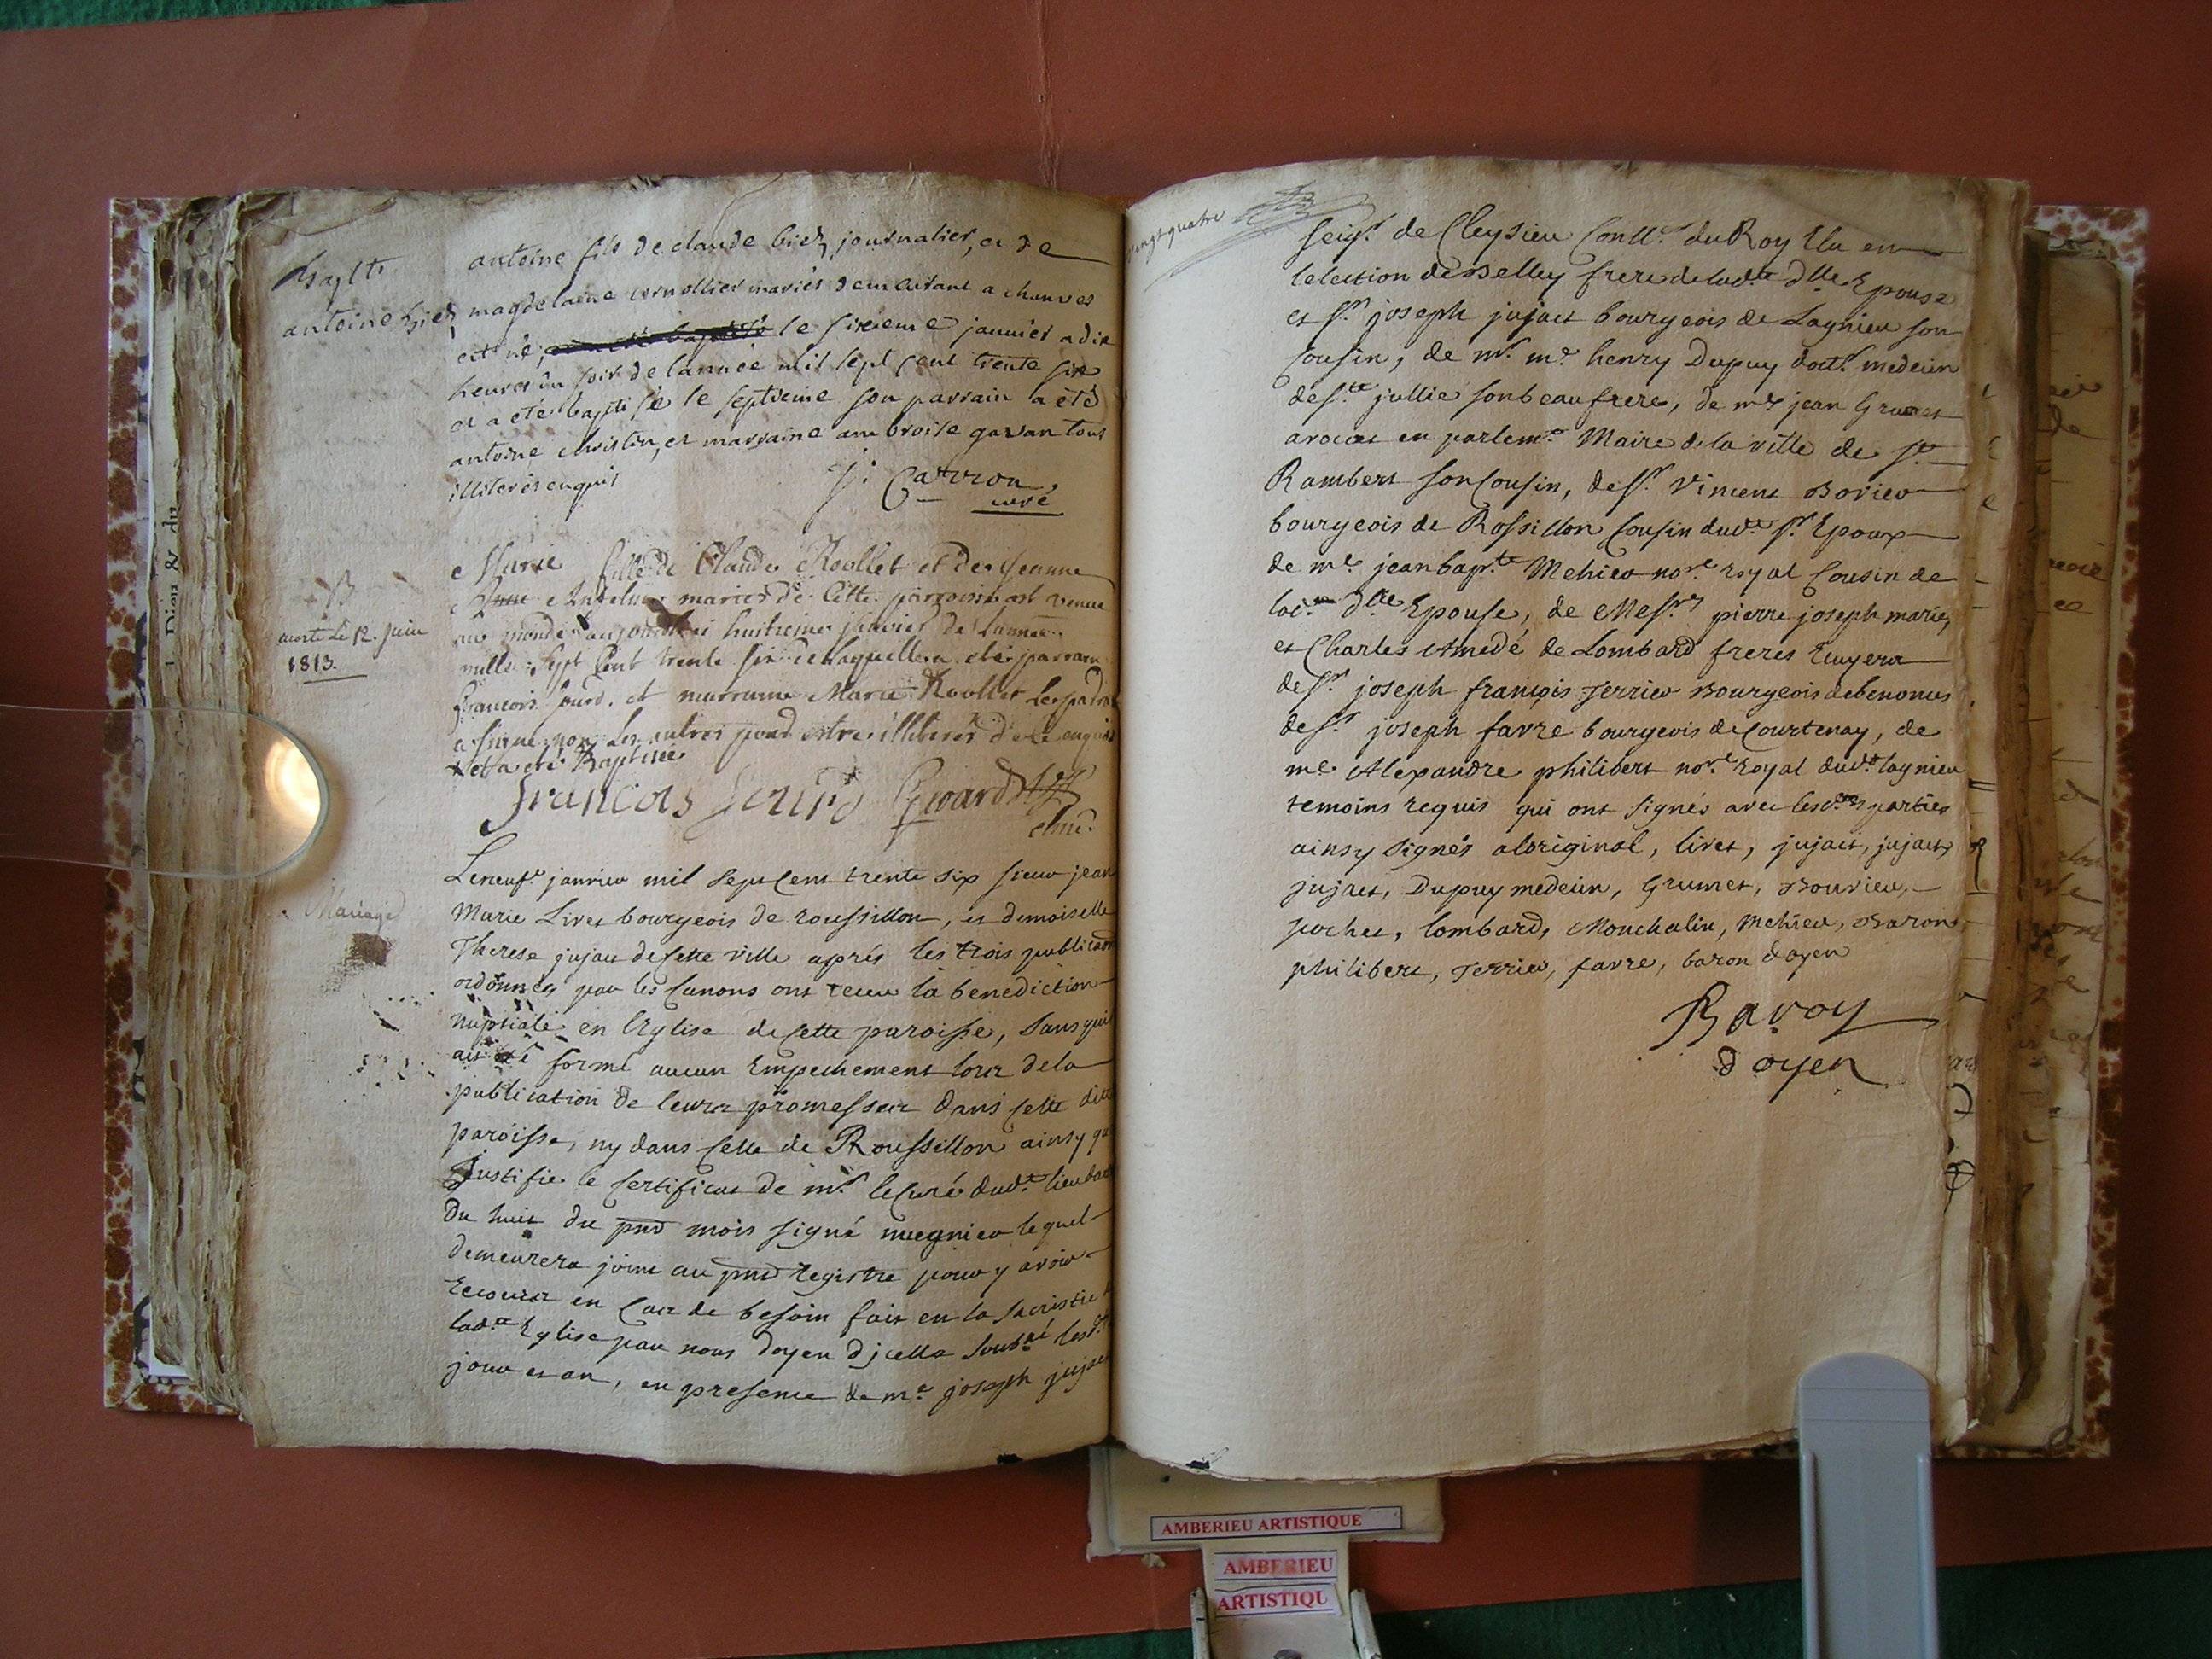 Bapt.
antoine bied
antoine fils de claude bied, journalier, et de
magdelaine cornollier mariés demeurant a chaures
est né, le sixieme janvier a dix
heures du soir de l'année mil sept cent trente six
et a eté baptisé le septieme son parrain a été
antoine christin, et marraine ambroise gavan tous
illiterés enquis
J. Carron
curé
B
morte le 12. Juin
1813.
Marie fille de Claude Roollet et de Jeanne
Anselme mariés de Cette parroisse est venue
au monde aujourdhui huitieme janvier de Lannée
mille Sept Cent trente six de laquelle a eté parrain
francois Jourd. et marraine Marie Roollet Le parrain
a signé non les autres pour estre illiterés de ce enquis
et a eté Baptisée
francois Girard
Mariage
Le neuf.e janvier mil sept cent trente six sieur jean
Marie Livet bourgeois de roussillon, et demoiselle
Therese jujat de cette ville aprés les trois publica͠on
ordonnés par les Canons ont receu la benediction
nuptiale en l'Eglise de cette paroisse, sans quil
ait été formé aucun Empechement lors de la
publication de leurs promesses dans cette dite
paroisse, ny dans celle de Roussillon ainsy que
Justifie le certificat de mr. le Curé dud.t lieu
Du huit du pn̄t mois signé mugnier lequel
demeurera joint au pn̄t Registre pour y avoir
Recours en Cas de besoin fait en la sacristie
lad.te Eglise par nous doyen d'jcelle les d.
jour et an, en presence de me. joseph jujat
vingt quatre
seigr. de Cleysieu Conllr. du Roy Elu en
lelection de Belley frere de lad.te dlle Epouse
et sr. joseph jujat bourgeois de Lagnieu son
Cousin, de mr. me. henry Dupuy doctr. medecin
de ste. jullie son beaufrere, de me jean Grumet
avocat en parlemt. Maire de la ville de st.
Rambert son Cousin, de sr. Vincent Bovier
bourgeois de Rossillon Cousin dud.t sr. Epoux
de me. jean bapt.te Mehier nore. royal Cousin de
lad.te dlle Epouse, de Messrs pierre joseph marie,
et Charles Amedé de Lombard freres Ecuyers
de sr. joseph françois Terrier Bourgeois de benonces
de sr. joseph favre bourgeois de Courtenay, de
me Alexandre philibert nore. royal dud.t lagnieu
temoins requis qui ont signés avec les d.tes parties
ainsy signés a loriginal, livet, jujat, jujat,
jujat, Dupuy medecin, Grumet, Bouvier,
pochet, lombard, Monchalin, Mehier, Baron,
philibert, Terrier, favre, baron doyen
Baron
doyen
AMBERIEU ARTISTIQUE
AMBERIEU
ARTISTIQU